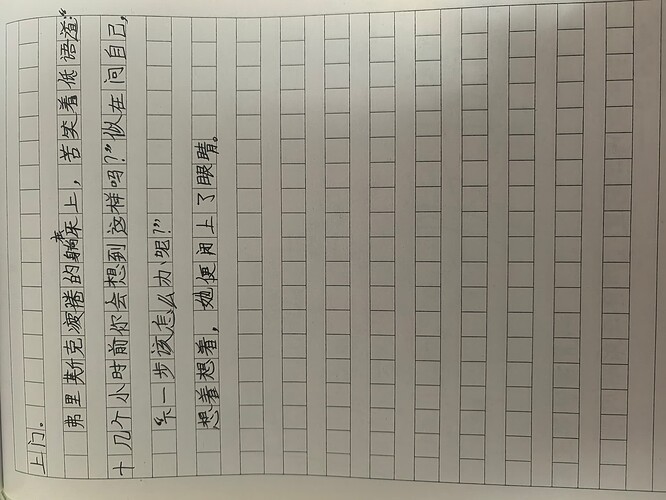 上门。
弗里斯克疲惫的躺在床上，苦笑着低语道:“
十几个小时前你会想到这样吗?”似在问自己，
“下一步该怎么办呢?”
想着想着，她便闭上了眼睛。